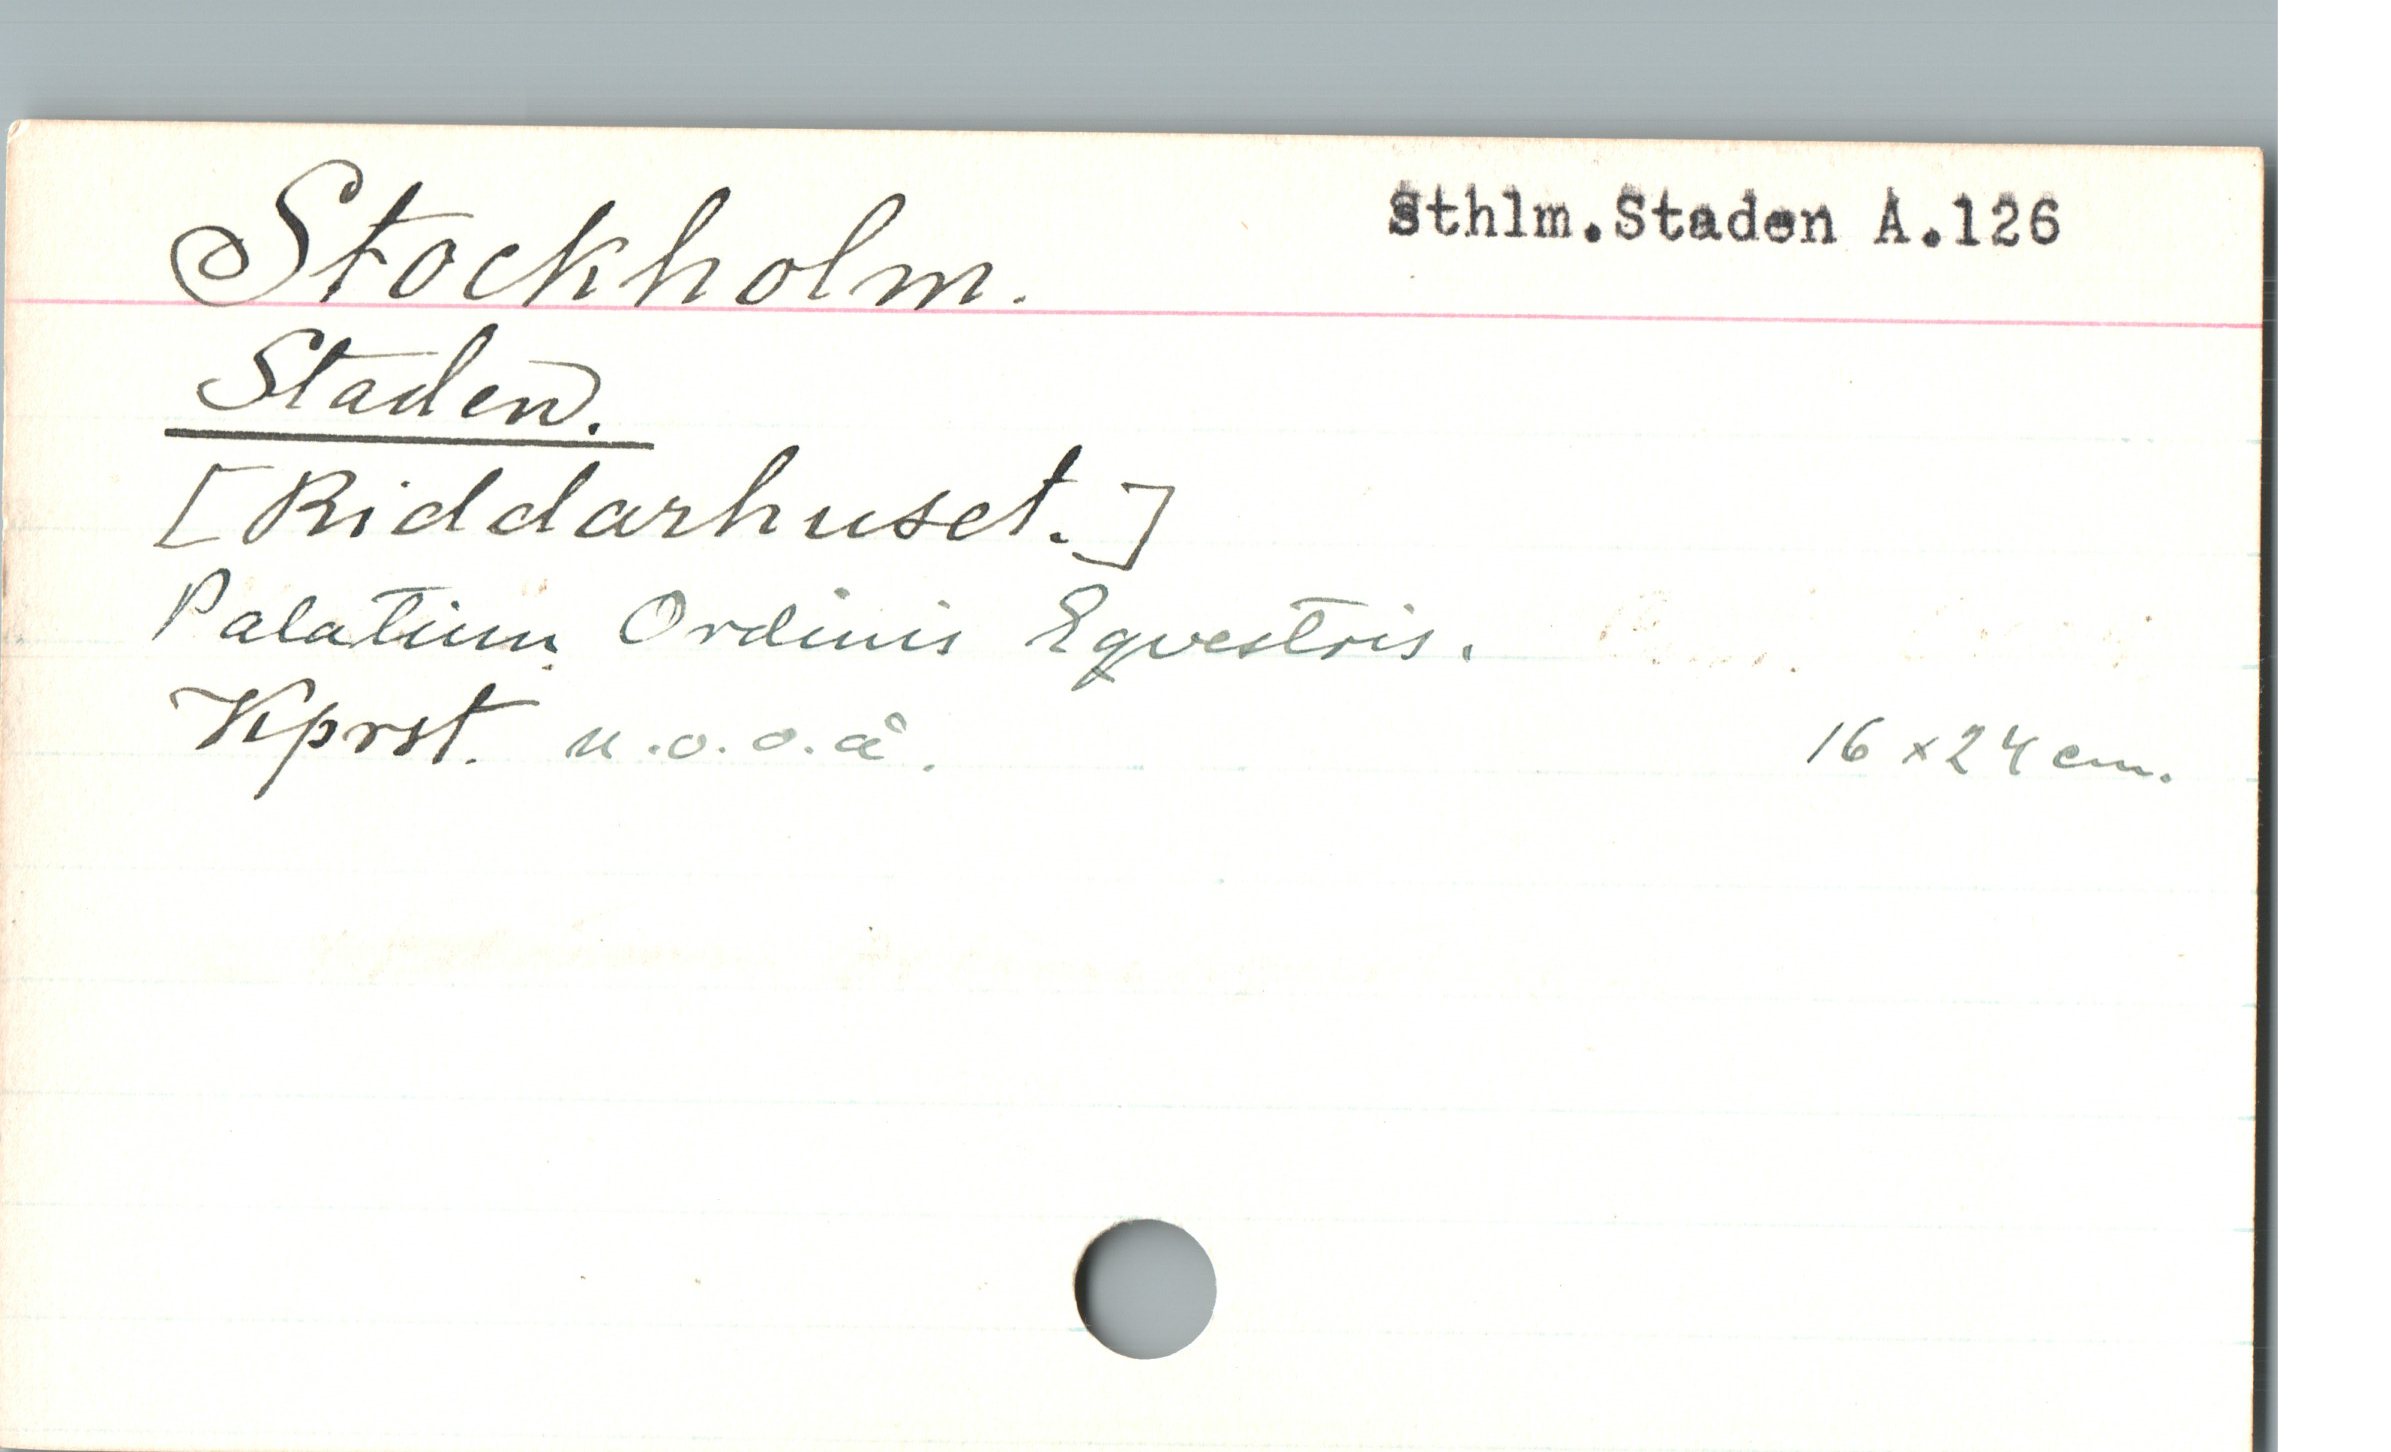 Stockholm.
Sthlm.Staden A.126
Staden.
[Riddarhuset.]
Palatium Ordinis Eqvestris.
Kprst. u.o.o.å.
16 x 24 cm.